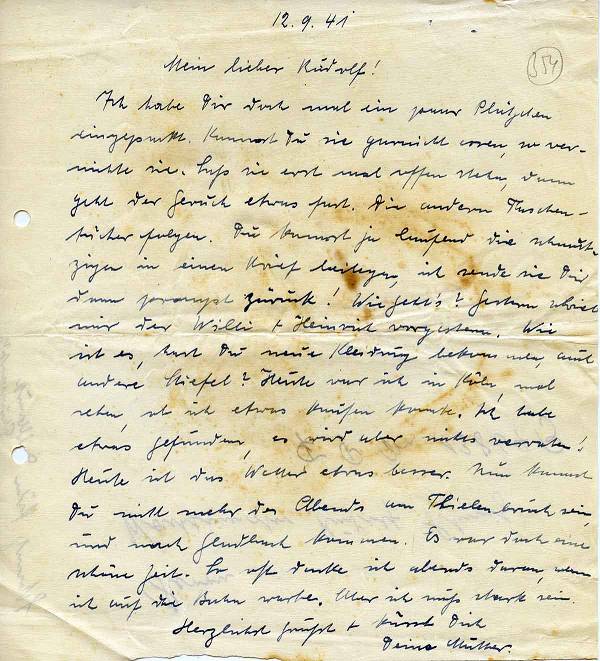 12.9.41
354
Mein lieber Rudolf!
Ich habe Dir doch mal ein paar Plätzchen
eingepackt. Kannst Du sie garnicht essen, so ver-
nichte sie. Laß sie erst mal offen stehn, dann
geht der Geruch etwas fort. Die andern Taschen-
tücher folgen. Du kannst ja laufend die schmutzigen
in einen Brief beilegen, ich sende sie Dir
dann prompt zurück! Wie geht's? Gestern schrieb
mir der Willi + Heinrich vorgestern. Wie
ist es, hast Du neue Kleidung bekommen, auch
andere Stiefel? Heute war ich in Köln, mal
sehen, ob ich etwas kaufen konnte. Ich habe
etwas gefunden, es wird aber nichts verraten!
Heute ist das Wetter etwas besser. Nun kannst
Du nicht mehr des Abends am Thielenbruch sein
und nach Gladbach kommen. Es war doch eine
schöne Zeit. So oft denke ich abends daran, wenn
ich auf die Bahn warte. Aber ich muß stark sein.
Herzlichst grüßt + küsst Dich
Deine Mutter.